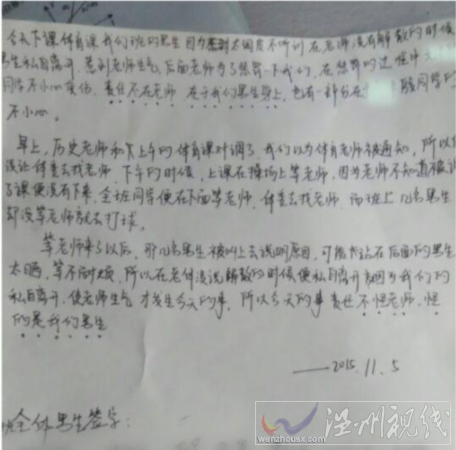 今天下课体育课我们班的男生因为差到太调皮不听训在老师没有解散的时候
男生私自离开.惹到老师生气,后面老师为了惩罚一下我们,在惩罚的过程中
同学不小心受伤,责任不在老师.在于我们男生身上,也有一部分在 骏同学的
不小心。
早上,历史老师和下上午的体育课对调了,我们以为体育老师被通知,所以
没让体委去找老师.下午的时候,上课在操场上等老师,因为老师不知道被调
了课便没有下来,全班同学便在下面等老师,体委去找老师,而班上几名男生
却没等老师就去打球。
等老师来了以后,那几名男生被叫上去说明原因,可能我站在后面的男生
太晒,等不耐烦,所以在老师没说解散的时候便私自离开,因为我们的
私自离开,使老师生气才发生今天的事,所以今天的事责任不怪老师,怪
的是我们男生
——2015.11.5
全体男生签字:
温州视线
wenzhousx.com